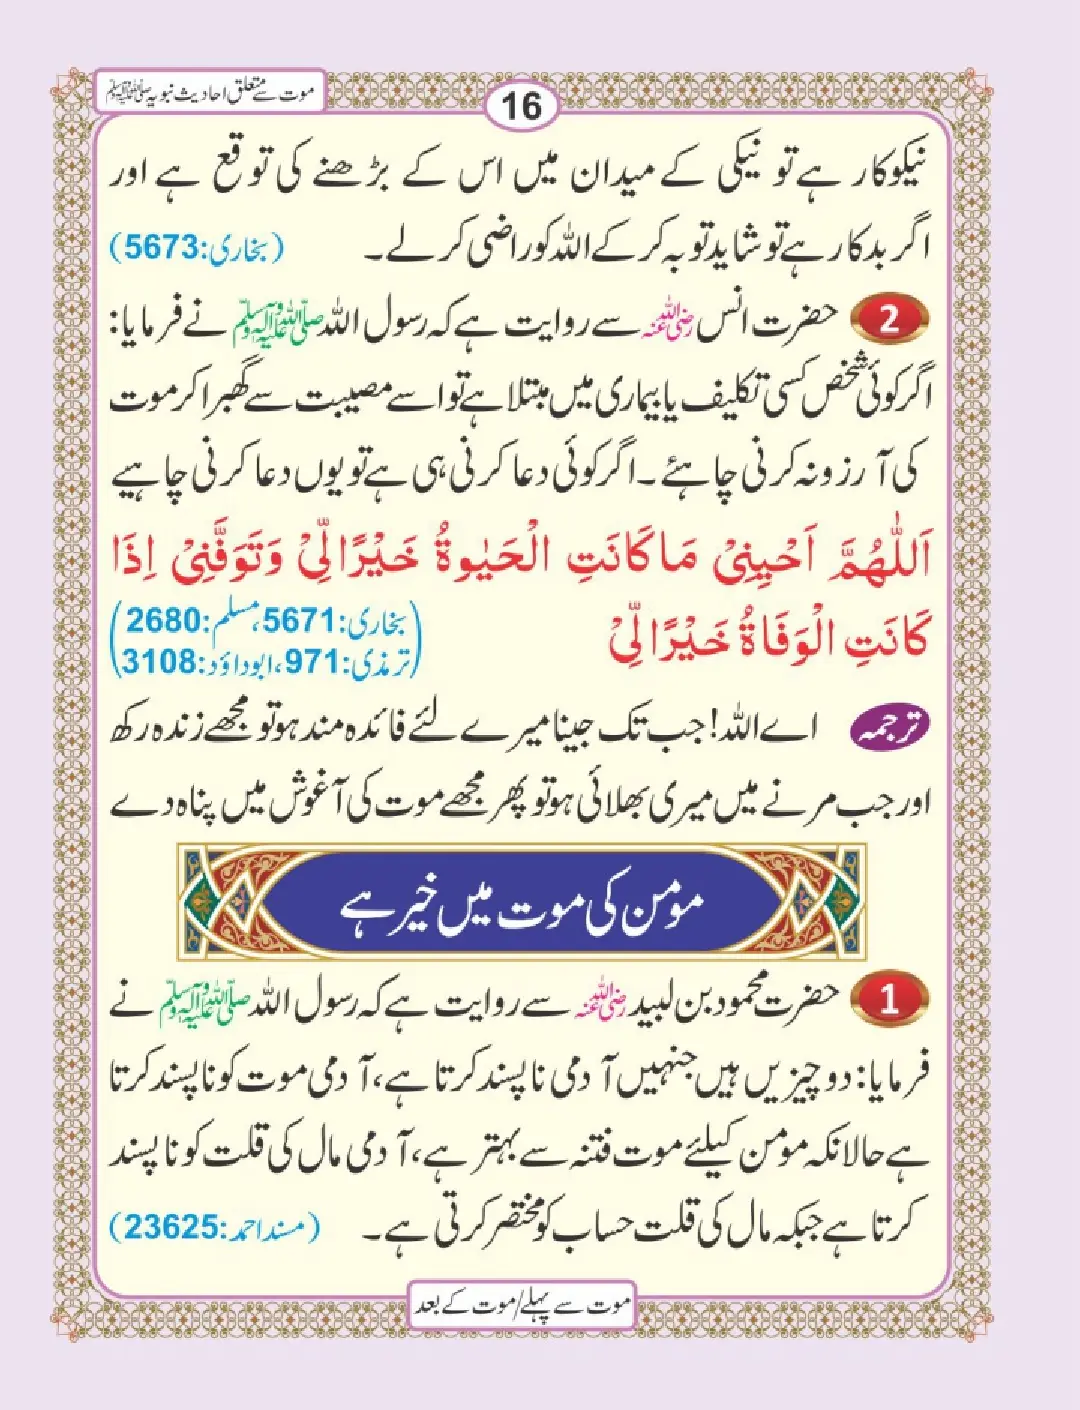 موت سے متعلق احادیث نبویہ ﷺ
16
نیکوکار ہے تو نیکی کے میدان میں اس کے بڑھنے کی توقع ہے اور
اگر بدکار ہے تو شاید توبہ کر کے اللہ کو راضی کر لے۔ (بخاری:5673)
2 حضرت انس رضی اللہ عنہ سے روایت ہے کہ رسول اللہ ﷺ نے فرمایا:
اگر کوئی شخص کسی تکلیف یا بیماری میں مبتلا ہے تو اسے مصیبت سے گھبرا کر موت
کی آرزو نہ کرنی چاہئے۔ اگر کوئی دعا کرنی ہی ہے تو یوں دعا کرنی چاہیے
اَللّٰهُمَّ اَحْيِنِیْ مَا كَانَتِ الْحَيٰوةُ خَيْرًا لِّیْ وَتَوَفَّنِیْ اِذَا
كَانَتِ الْوَفَاةُ خَيْرًا لِّیْ
(بخاری:5671، مسلم:2680
ترمذی:971، ابوداؤد:3108)
ترجمہ اے اللہ! جب تک جینا میرے لئے فائدہ مند ہو تو مجھے زندہ رکھ
اور جب مرنے میں میری بھلائی ہو تو پھر مجھے موت کی آغوش میں پناہ دے
مومن کی موت میں خیر ہے
1 حضرت محمود بن لبید رضی اللہ عنہ سے روایت ہے کہ رسول اللہ ﷺ نے
فرمایا: دو چیزیں ہیں جنہیں آدمی ناپسند کرتا ہے، آدمی موت کو ناپسند کرتا
ہے حالانکہ مومن کیلئے موت فتنہ سے بہتر ہے، آدمی مال کی قلت کو ناپسند
کرتا ہے جبکہ مال کی قلت حساب کو مختصر کرتی ہے۔ (مسند احمد:23625)
موت سے پہلے/موت کے بعد